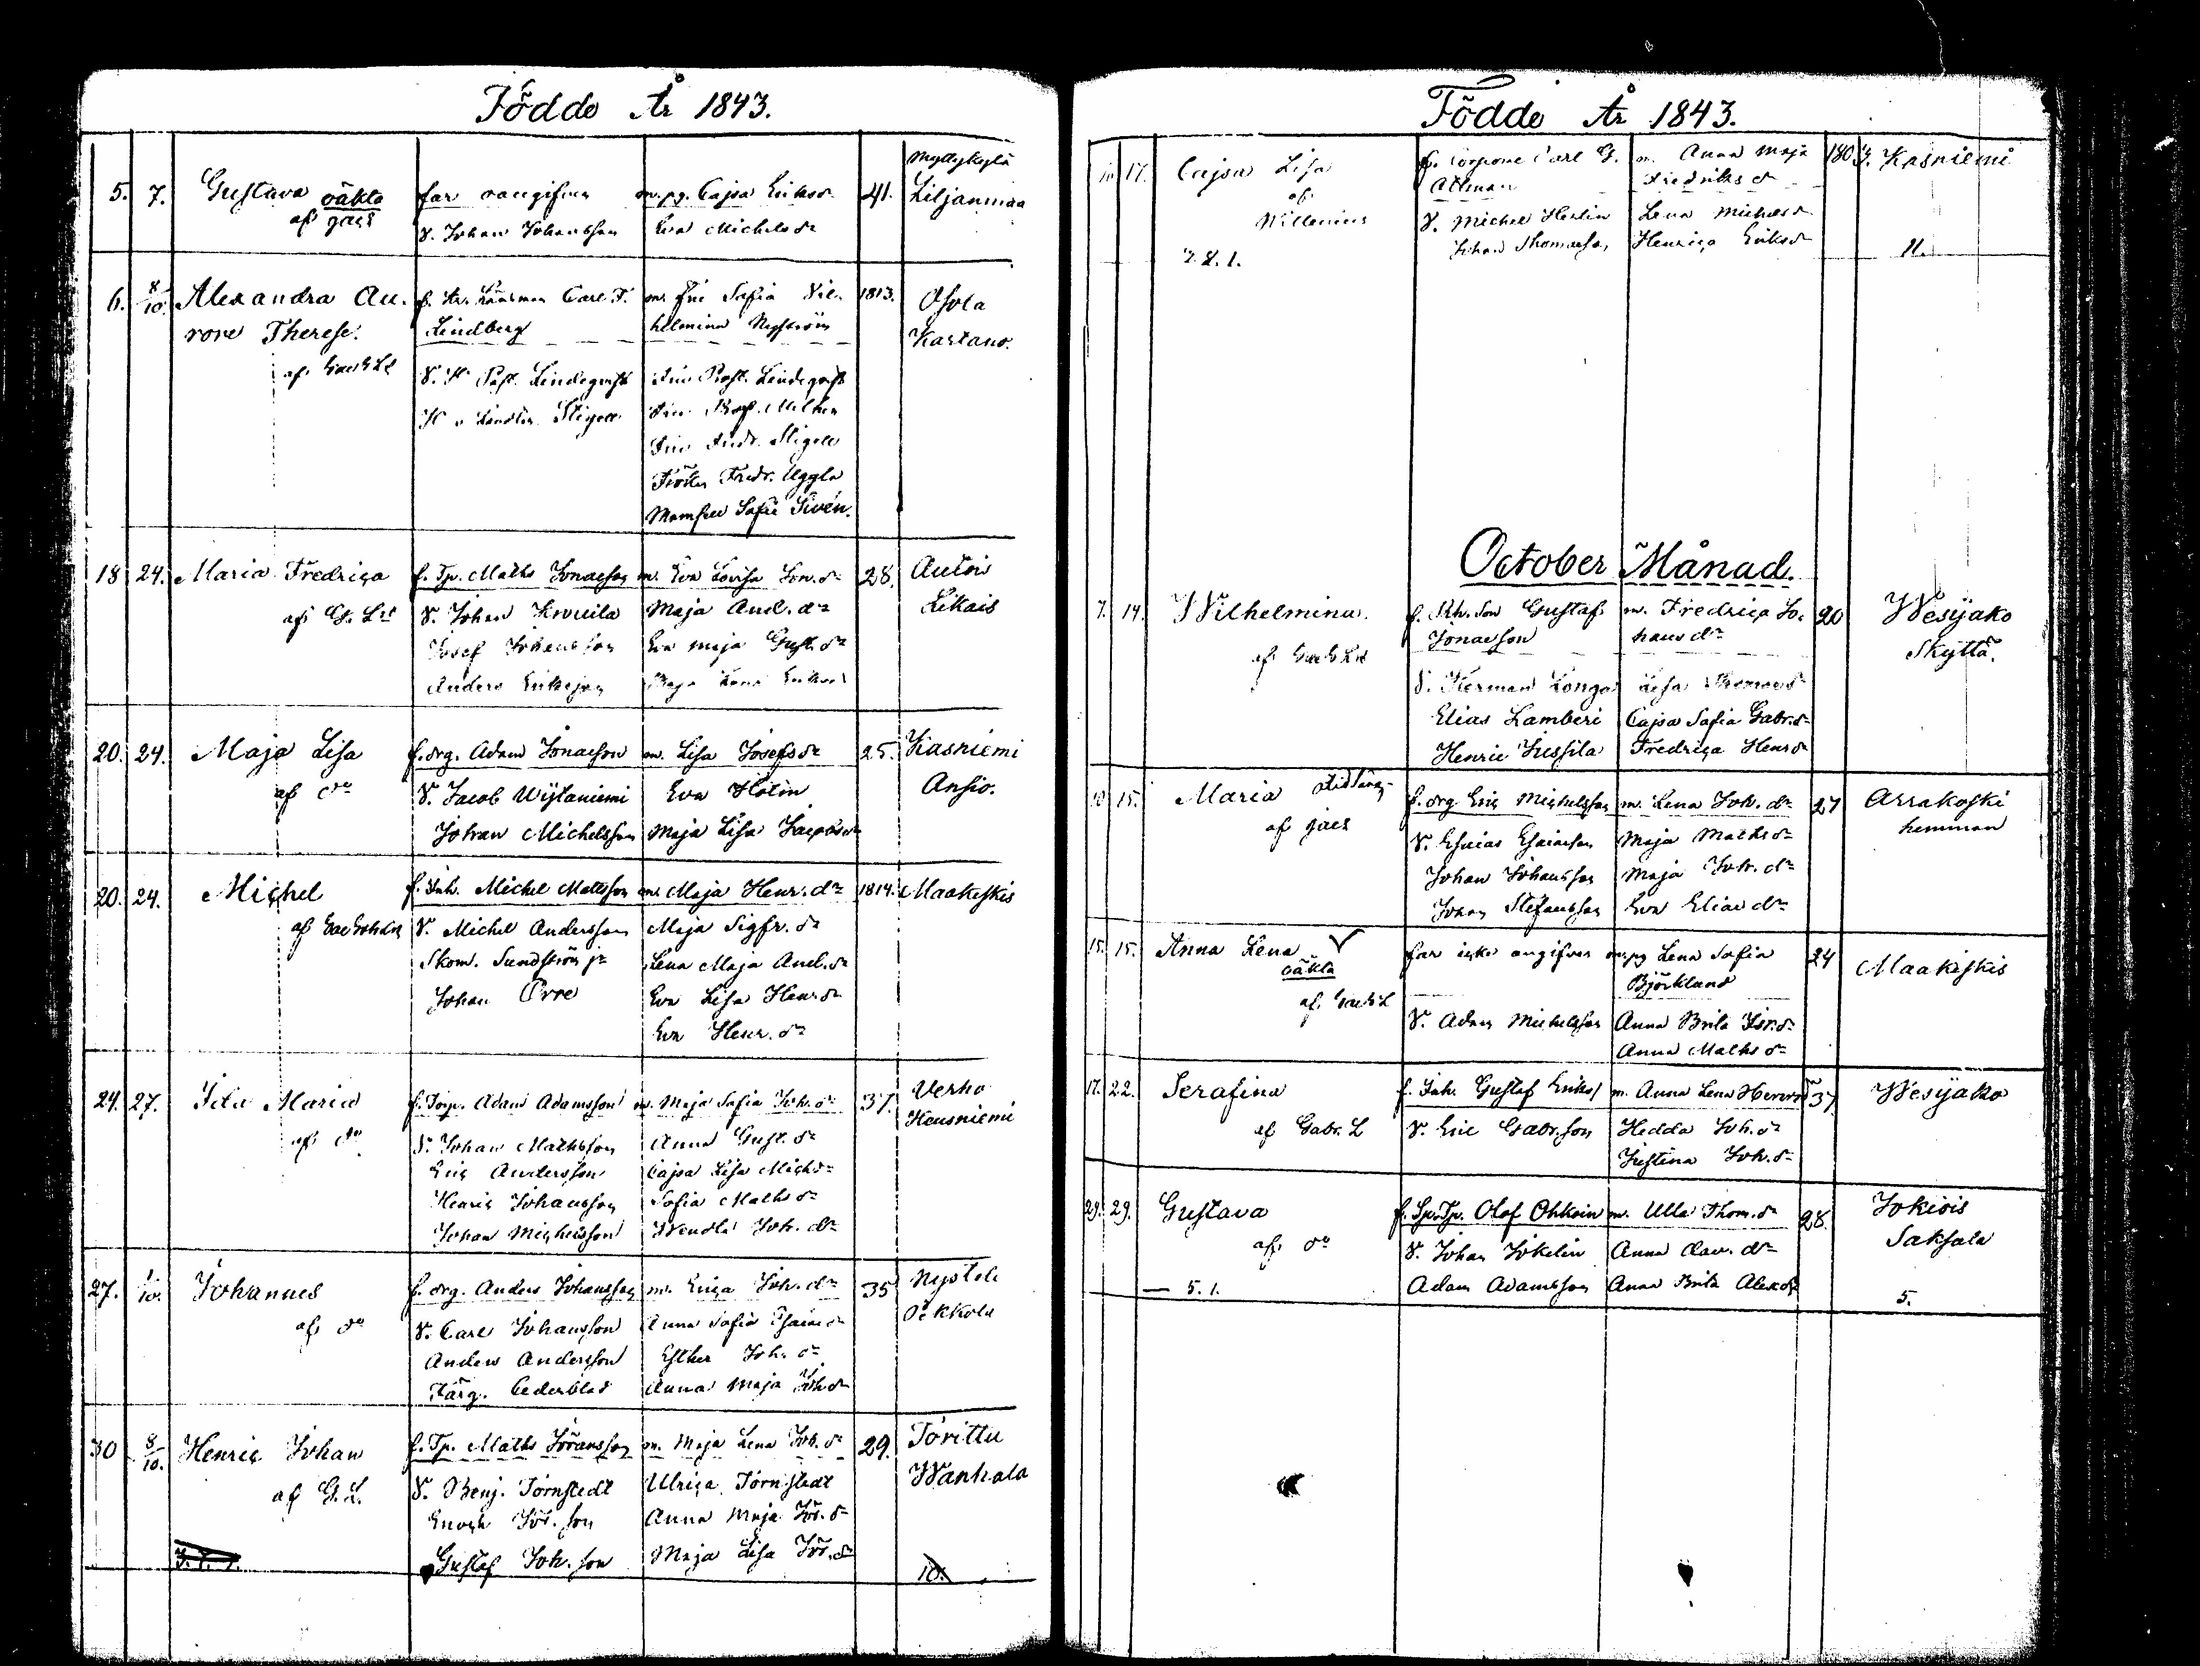 Födde År 1843.
5. 7. Gustava oäkta far oangifven m. pg. Cajsa Eriksd:r 41. Myllykylä Liljanmaa
V. Johan Johansson Eva Michelsd:r
6. 8/10. Alexandra Au- f. Carl F. m. Fru Sofia Vil- 1813. Asola
rore Therese. Lindberg helmina Nyström Kartano.
V. H. Past. Lindeqvist Fru Prost. Lindeqvist
H. Stigell Fru
Fru Stigell
Fröken Fredr. Uggla
Mamsell Sofie Sivén.
18 24. Maria Fredrica f. Tp. Maths Jonasson m. Eva Lovisa Jon.d:r 28. Autois
V. Johan Maja And. d:r Likais
Josef Johansson Eva Maja Gust. d:r
Anders Eriksson Maja Lena Eriksd
20. 24. Maja Lisa f. drg. Adam Jonasson m. Lisa Josefsd:r 25. Kasniemi
af d:o V. Jacob Wijtaniemi Eva Hölin Ansio.
Johan Michelsson Maja Lisa Jacobsd:r
20. 24. Michel f. Inh. Michel Mattsson m. Maja Henr. d:r 1814. Maakeskis
V. Michel Andersson Maja Sigfr. d:r
Skom. Sundström Lena Maja And. d:r
Johan Orre Eva Lisa Henr.d:r
Eva Henr. d:r
24. 27. Ida Maria f. Torp. Adam Adamsson m. Maja Sofia Joh. d:r 37. Verho
af d:o V. Johan Mathsson Anna Gust. d:r Heusniemi
Eric Andersson Cajsa Lisa Michd:r
Henric Johansson Sofia Maths d:r
Johan Michelsson Wendla Joh. d:r
27. 1/10. Johannes f. drg. Anders Johansson m. Erica Joh. d:r 35 Nystölö
af d:o V. Carl Johansson Anna Sofia Esaiaed:r Pekkola
Anders Andersson Esther Joh. d:r
Färg. Cederblad Anna Maja Joh d:r
30 8/10. Henric Johan f. Tp. Maths Jöransson m. Maja Lena Joh. d:r 29. Torittu
af G. L. V. Benj. Törnstedt Ulrica Törnstedt Wanhala
Enoch Jör. son Anna Maja Jör. d:r
Gustaf Joh. son Maja Lisa Jör. d:r
10.
Födde År 1843.
17. Cajsa Lisa f. Carl G. m. Anna Maja 180 Kasniemi
af Allman Fredriks d
Willenius V. Michel Herlin Lena Michelsd:r
Johan Thomasson Henrica Eriksd:r
11.
October Månad.
7. 14. Wilhelmina. f. Gustaf m. Fredrica Jo- 20 Wesijako
Jonasson hans d:r Skyttä.
V. Herman Longa Lisa Thomasd:r
Elias Lamberi Cajsa Sofia Gabr.d:r
Henric Jussila Fredrica Henr d:r
15. Maria f. drg Eric Michelsson m. Lena Joh. d:r 27 Arrakoski
V. Esaias Esaiasson Maja Maths d:r hemman
Johan Johansson Maja Joh. d:r
Johan Stefansson Eva Elias d:r
15. 15. Anna Lena far icke angifven m. pg Lena Sofia 24 Maakeskis
oäkta Björklund
V. Adam Michelsson Anna Brita
Anna Maths d:r
17. 22. Serafina f. Inh. Gustaf Eriks/ m. Anna Lena 37 Wesijako
af Gabr. L V. Eric Gabr.son Hedda Joh. d:r
Justina Joh. d:r
29. 29. Gustava f. Sp. Tp. Olof Ohkoin m. Ulla Thom. d:r 28. Jokiois
af d:o V. Johan Jokelin Anna Dav. d:r Saksala
5. 1. Adam Adamsson Anna Brita Alexd:r 5.